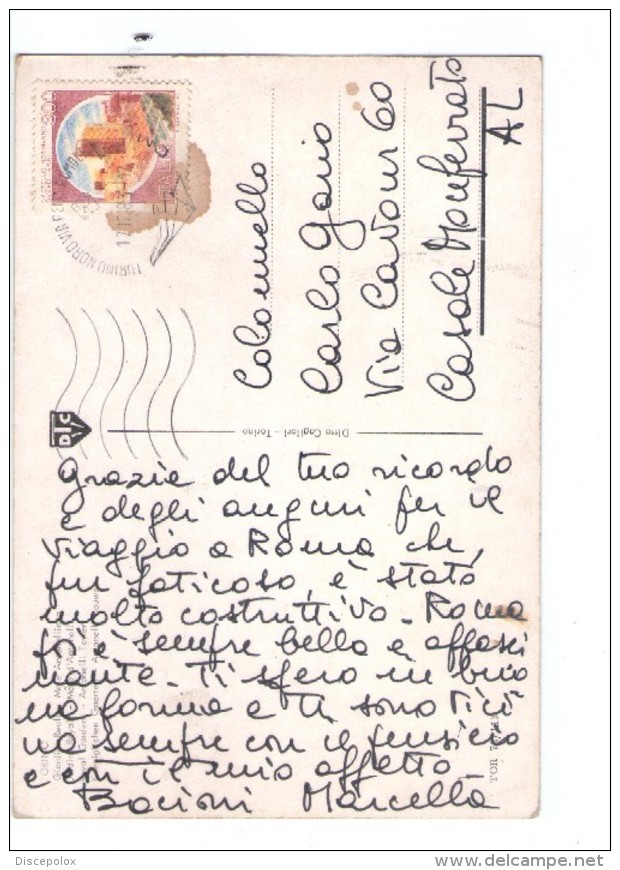 Colonnello
Carlo Gario
Via Cavour 60
Casale Monferrato
AL
Ditta Cagliari - Torino
Grazie del tuo ricordo
e degli auguri per il
viaggio a Roma che,
pur faticoso, è stato
molto costruttivo - Roma
poi è sempre bella e affasci
nante - Ti spero in buo
na forma e ti sono vici
na sempre con il pensiero
e con il mio affetto
Bacioni Marcella
TORINO
Discepolox
delcampe.net